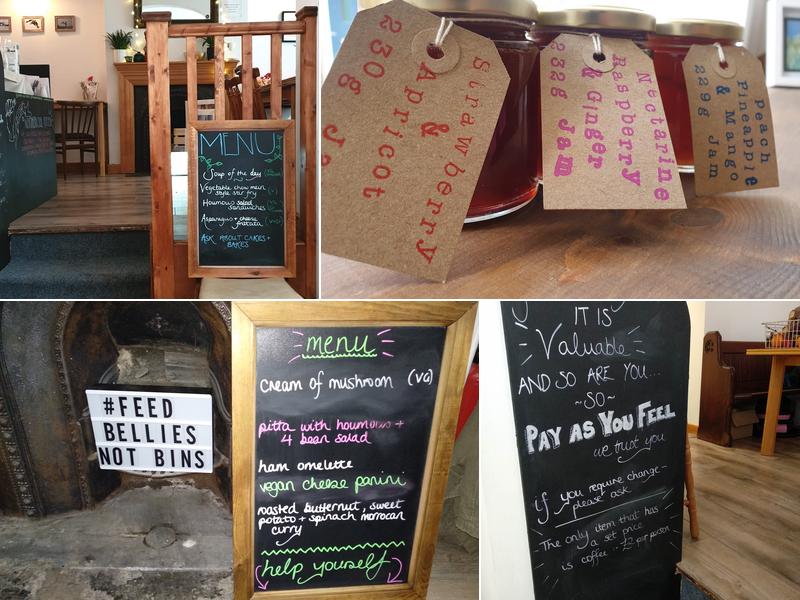 MENU
Soup of the day
Vegetable chow mein
style stir fry
Houmous salad
sandwiches
Asparagus + cheese
frittata
ASK ABOUT CAKES +
BAKES
Strawberry
&
Apricot
230g Ja
Nectarine
Raspberry
& Ginger
232g Jam
Peach
Pineapple
& Mango
229g Jam
#FEED
BELLIES
NOT BINS
menu
cream of mushroom (VG)
pitta with houmous +
4 bean salad
ham omelette
vegan cheese panini
roasted butternut, sweet
potato + spinach morrocan
curry
help yourself
IT IS
Valuable
AND SO ARE YOU...
~SO~
PAY AS YOU FEEL
we trust you
if you require change-
please ask
The only item that has
a set price
is coffee :- £2 per person